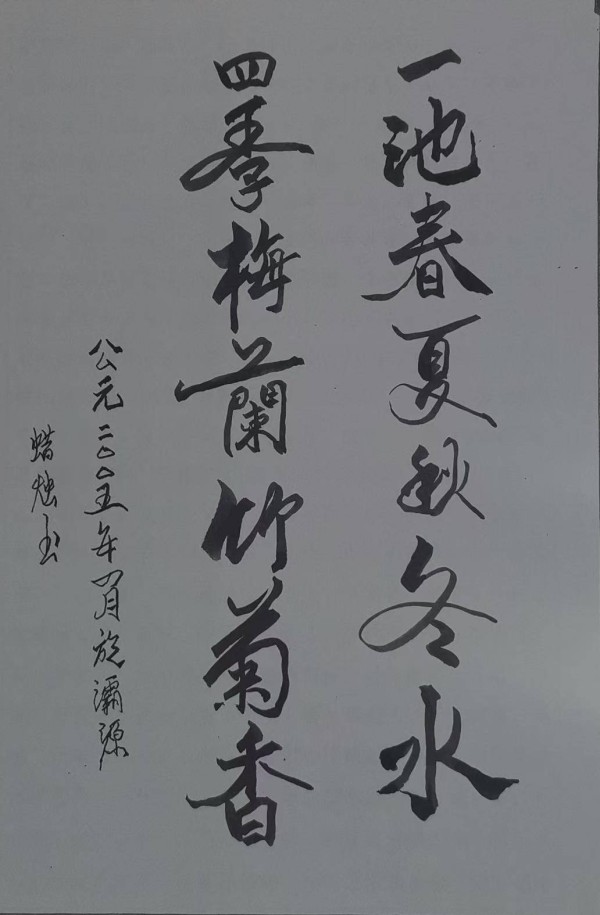 一池春夏秋冬水
四季梅蘭竹菊香
公元二〇〇五年月於瀰源
蜡烛